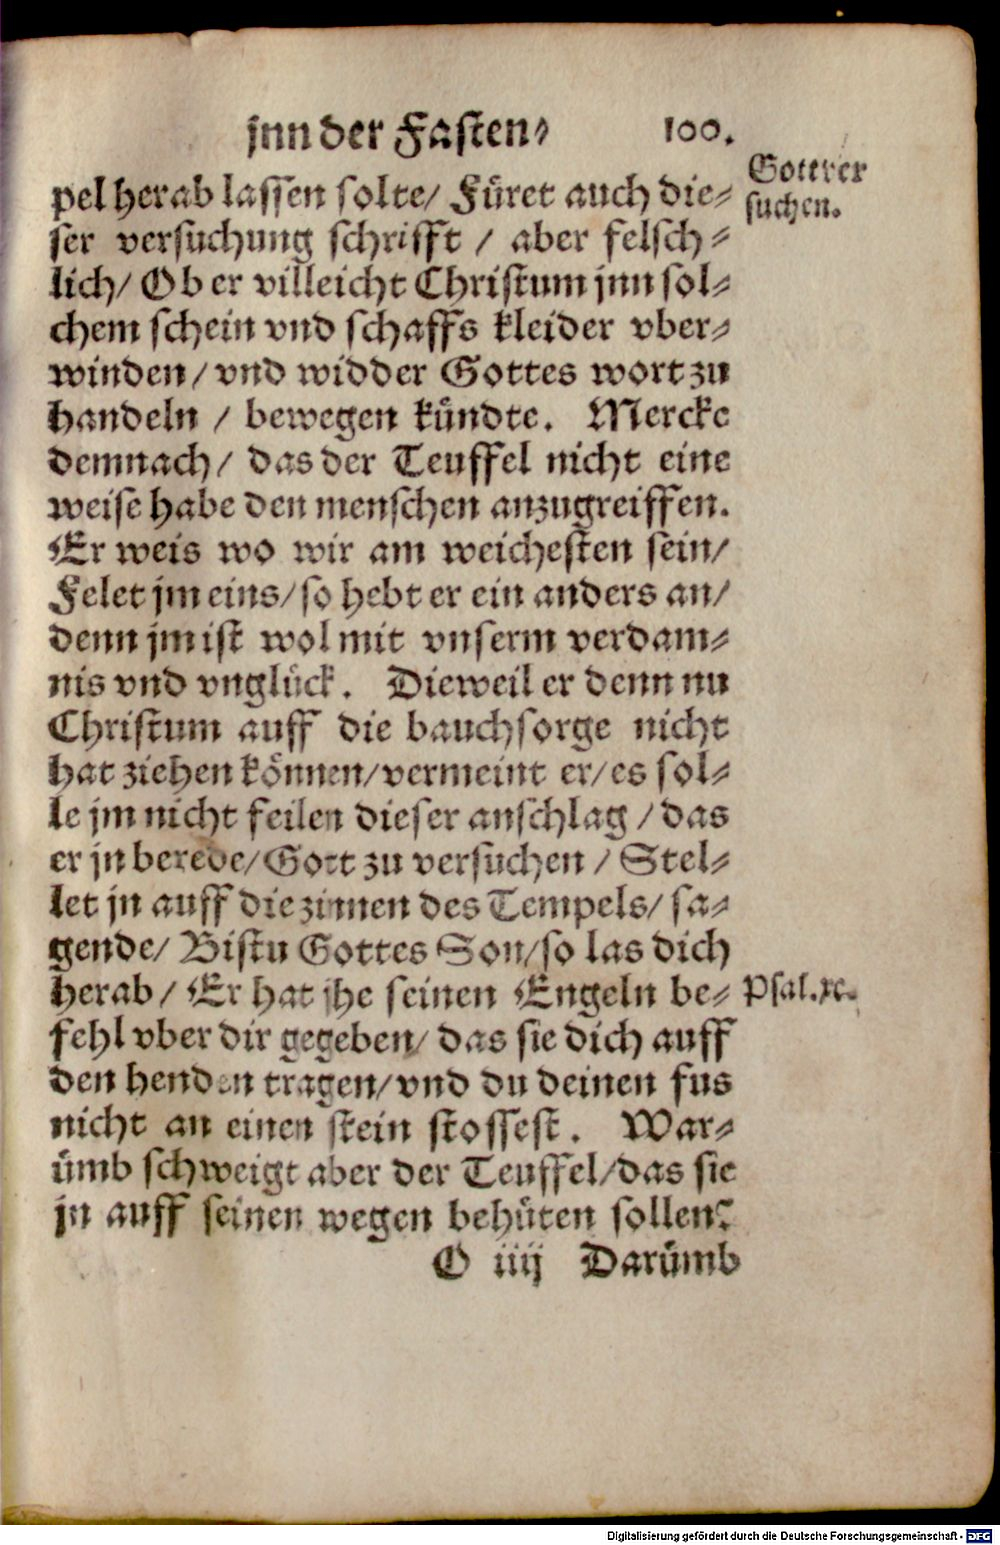 jnn der Fasten⸗ 100.
Gott ver
suchen.
pel herab lassen solte/ Füret auch die⸗
ser versuchung schrifft / aber felsch⸗
lich/ Ob er villeicht Christum jnn sol⸗
chem schein vnd schaffs kleider vber⸗
winden/ vnd widder Gottes wort zu
handeln / bewegen kündte. Mercke
demnach/ das der Teuffel nicht eine
weise habe den menschen anzugreiffen.
Er weis wo wir am weichesten sein/
Felet jm eins/ so hebt er ein anders an/
denn jm ist wol mit vnserm verdam⸗
nis vnd vnglück. Dieweil er denn nu
Christum auff die bauchsorge nicht
hat ziehen können/ vermeint er/ es sol⸗
le jm nicht feilen dieser anschlag / das
er jn berede/ Gott zu versuchen / Stel⸗
let jn auff die zinnen des Tempels/ sa⸗
gende/ Bistu Gottes Son/ so las dich
herab/ Er hat jhe seinen Engeln be⸗
Psal. xc.
fehl vber dir gegeben/ das sie dich auff
den henden tragen/ vnd du deinen fus
nicht an einen stein stossest. War⸗
ümb schweigt aber der Teuffel/ das sie
jn auff seinen wegen behüten sollen?
O iiij Darümb
Digitalisierung gefördert durch die Deutsche Forschungsgemeinschaft - DFG